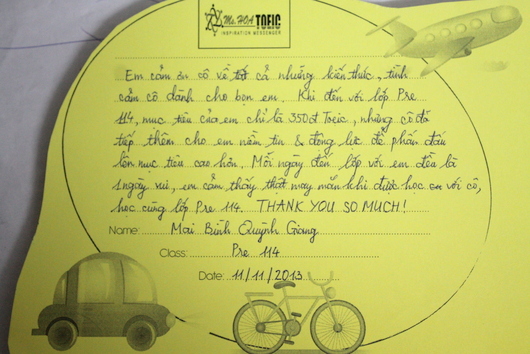 Ms. HOA TOEIC
INSPIRATION MESSENGER
Em cảm ơn cô về tất cả những kiến thức, tình
cảm cô dành cho bọn em. Khi đến với lớp Pre
114, mục tiêu của em chỉ là 350đ Toeic, nhưng cô đã
tiếp thêm cho em niềm tin & động lực để phấn đấu
lên mục tiêu cao hơn. Mỗi ngày đến lớp với em đều là
1 ngày vui, em cảm thấy thật may mắn khi được học với cô,
học cùng lớp Pre 114. THANK YOU SO MUCH!
Name: Mai Bình Quỳnh Giang
Class: Pre 114
Date: 11/11/2013